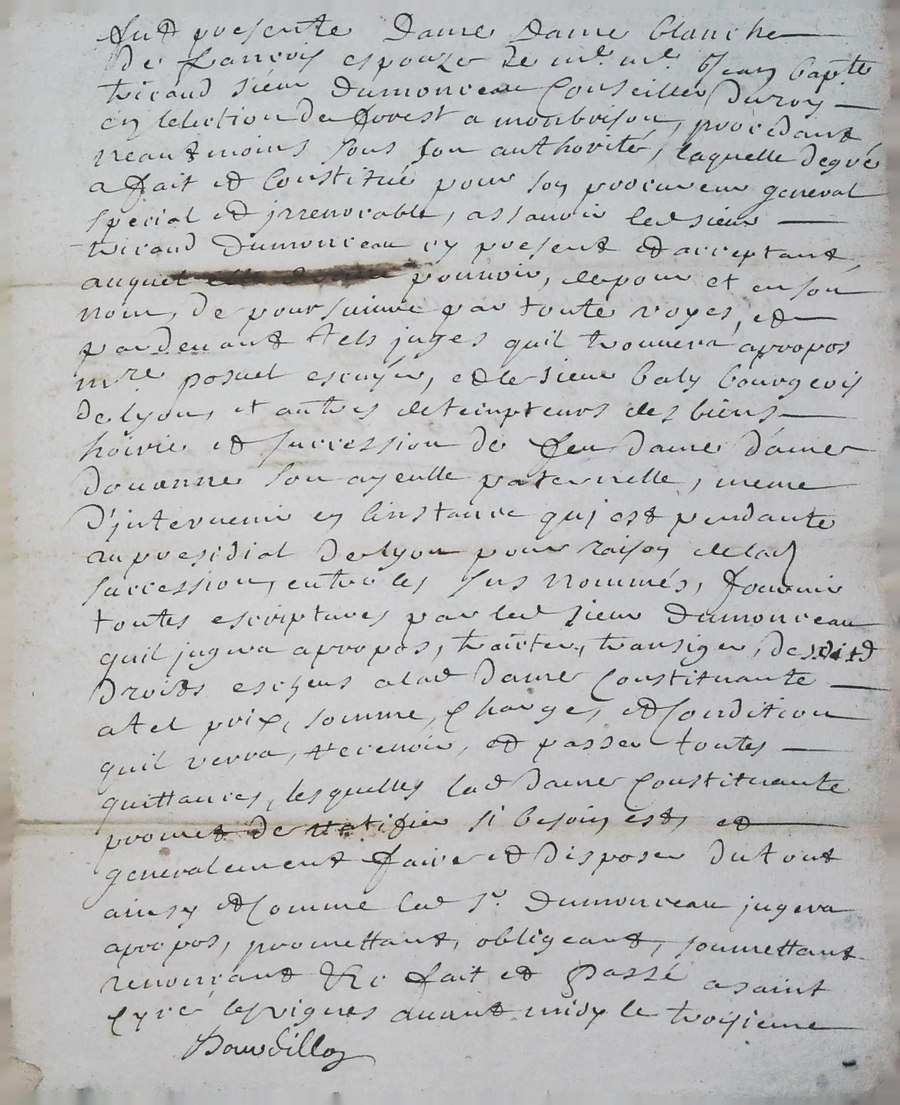 fut presente Dame Dame blanche
De francois espouze de mr. mr. Jean bapte
Sieur Dumonceau Conseiller Du roy
en lelection de forest a monbrison, procedant
neantmoins sous son authorité, laquelle de gré
a fait et Constitué pour son procureur general
special et irrevocable, assauoir led sieur
Dumonceau cy present et acceptant
auquel pouuoir, de pour et en son
nom, de poursuiure par toute voyes, et
pardeuant tels juges quil trouuera apropos
mre posuel escuyer, et le Sieur baly bourgeois
de lyon, et autres detempteurs des biens
hoirie et succession de feu dame dame
douanne son ayeulle paternelle, meme
D'interuenir en linstance qui est pendante
au presidial de lyon pour raison de lad
succession, entre les sus nommés, fournir
toutes escriptures par led sieur Dumonceau
quil jugera apropos, traicter, transiger, desdits
Droits escheus a lad Dame Constituante
a tel prix, somme, charges, et condition
quil verra, receuoir, et passer toutes
quittances, lesquelles lad dame Constituante
promet de ratifier si besoin est, et
generalement faire et disposer du tout
ainsy et comme led Sr. Dumonceau jugera
apropos, promettant, obligeant, soumettant
renonçant &c fait et Passé a saint
Cyre les vignes auant midy le troisieme